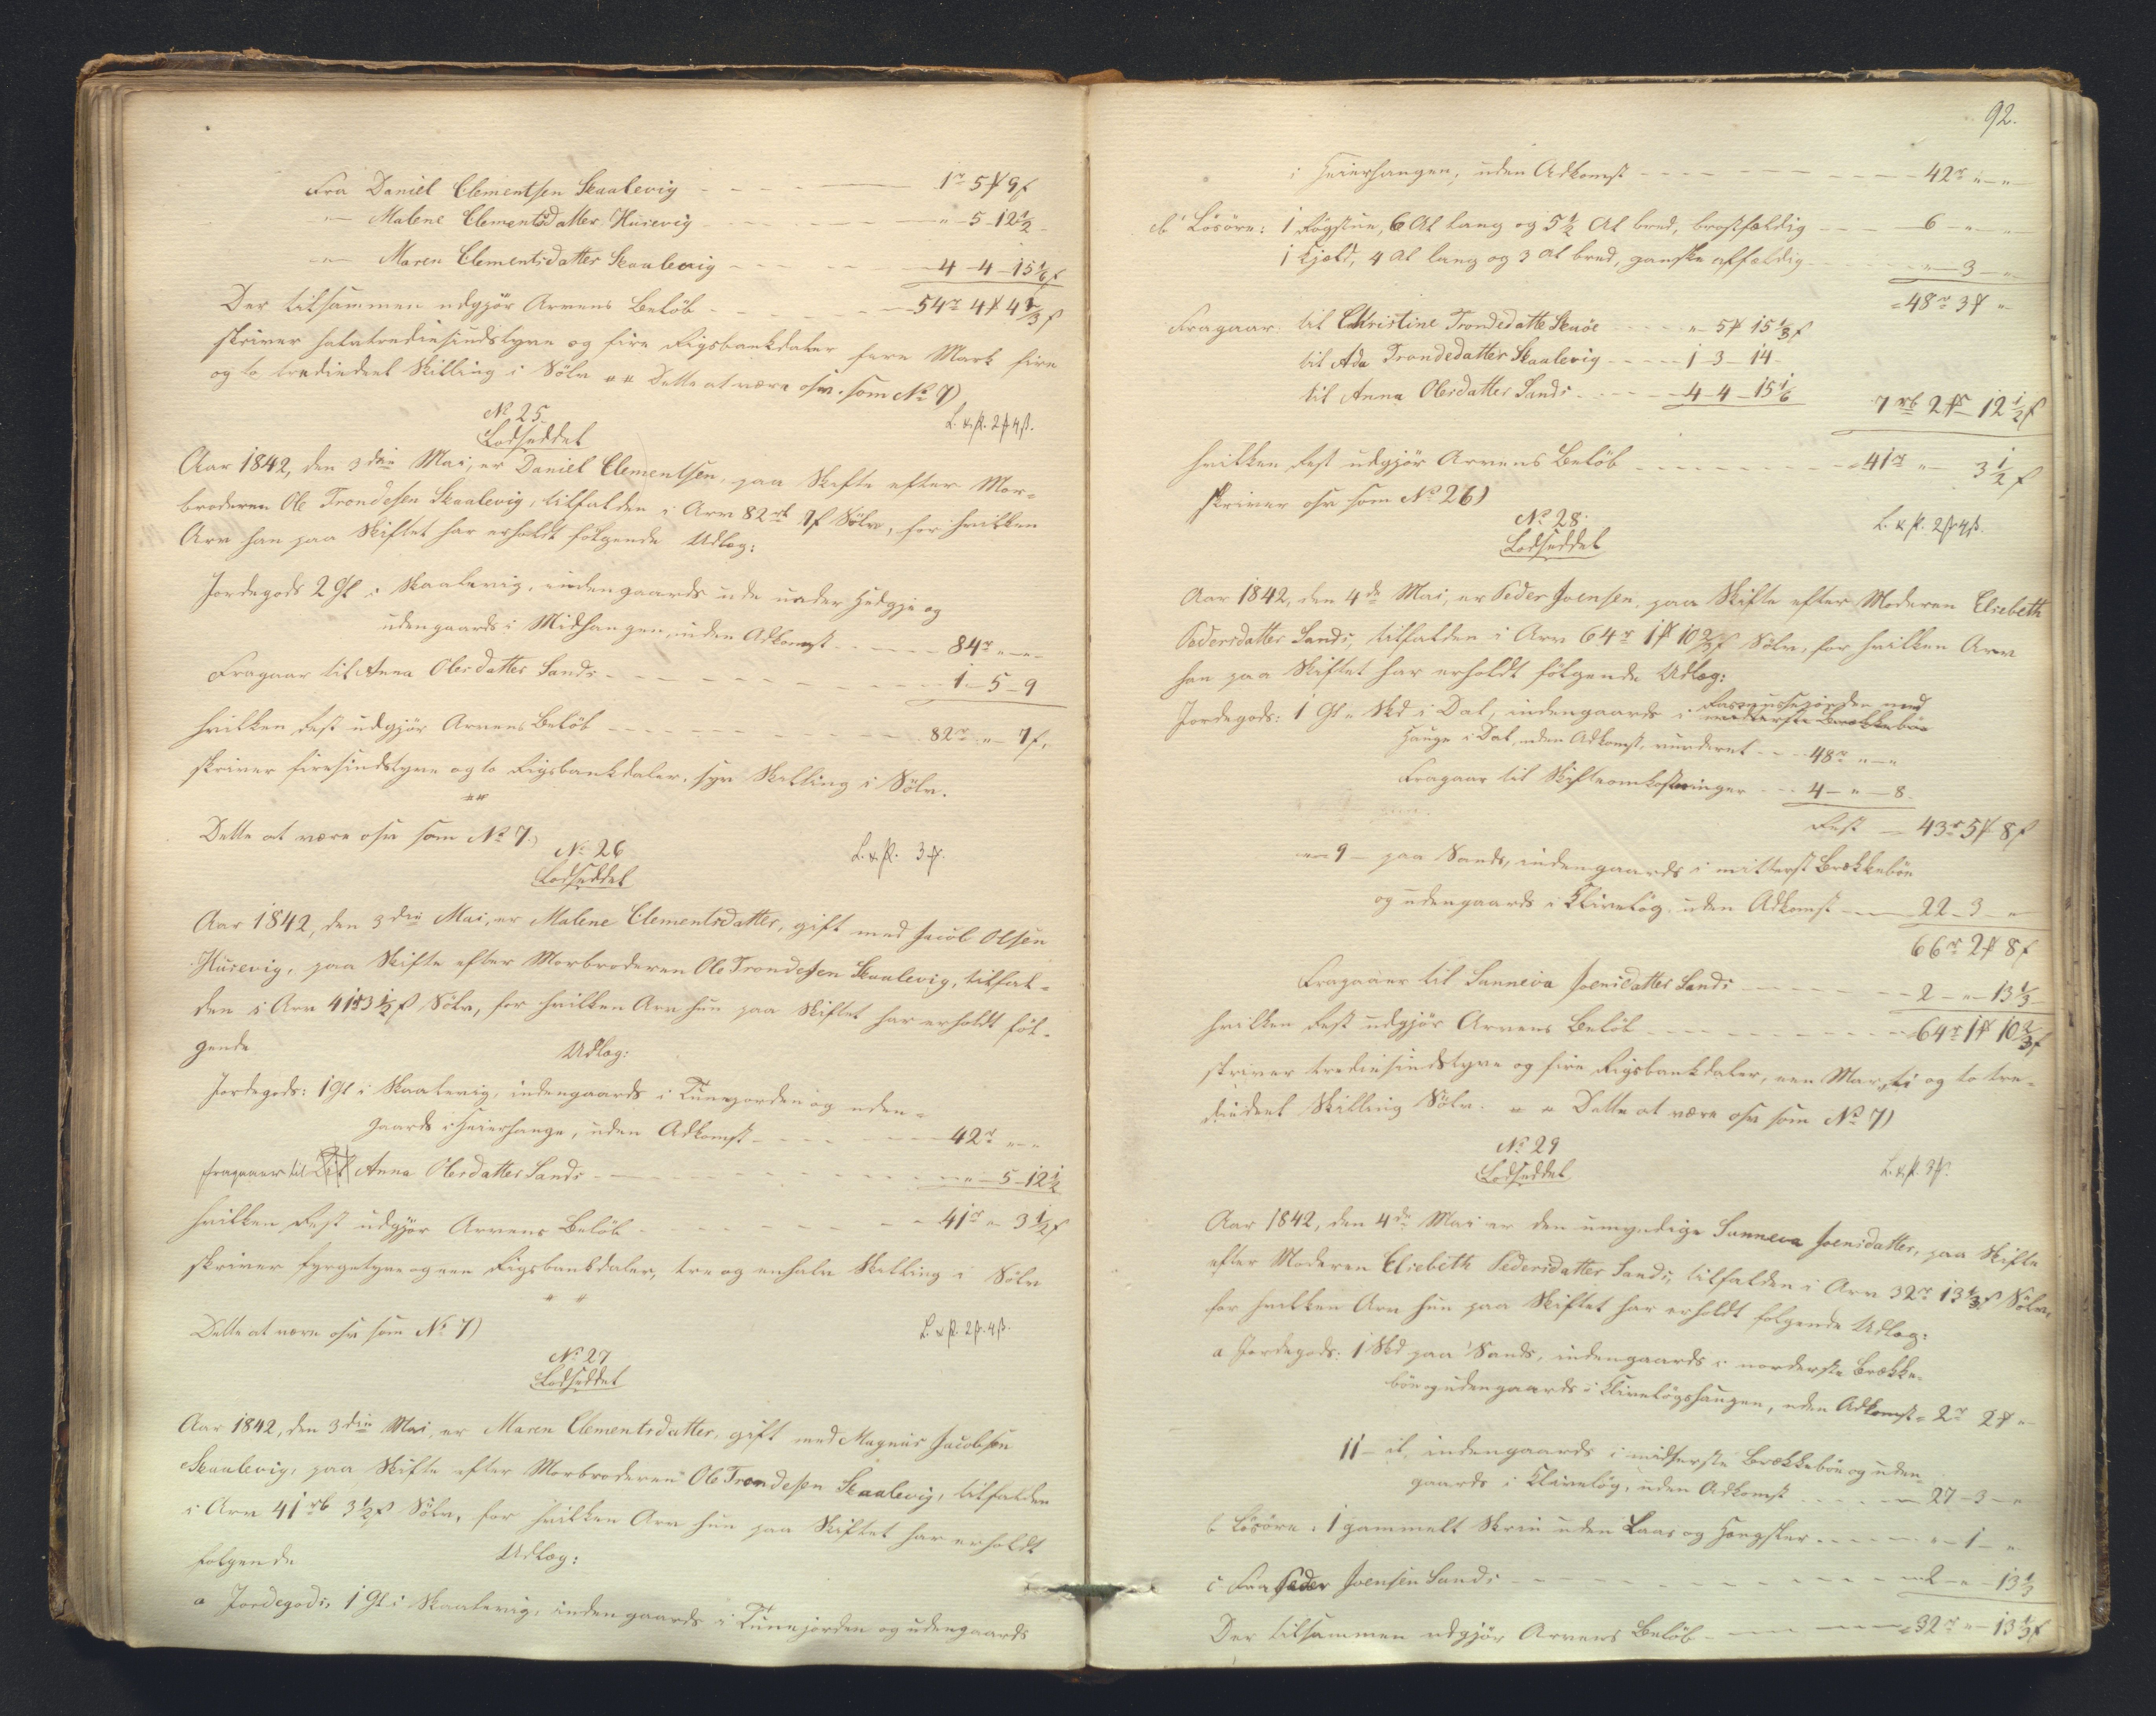 Fra Daniel Clementsen Skaalevig - - - 1r 5 ℔ 9 ß
"— Malene Clementsdatter Husevig - - - " - 5 - 12 1/2
"— Maren Clementsdatter Skaalevig - - - 4 - 4 - 15 1/6 ß
Der tilsammen udgjör Arvens Belöb - - - 54r 4 ℔ 4 2/3 ß
skriver halvtrediesindstyve og fire Rigsbankdaler fire Mark fire
og to trediedeel Skilling i Sölv " " Dette at være osv. som No 7)
No 25
L. & P. 2 ℔ 4 ß.
Lodseddel
Aar 1842, den 3die Mai, er Daniel Clementsen, paa Skifte efter Mor-
broderen Ole Trondesen Skaalevig, tilfalden i Arv 82rb 7 ß Sölv, for hvilken
Arv han paa Skiftet har erholdt fölgende Udlæg:
Jordegods 2 Gl i Skaalevig, indengaards ude under Hedgje og
udengaards i Midhaugen, uden Adkomst - - - 84r " - "
Fragaar til Anna Olesdatter Sands - - - 1 - 5 - 9
hvilken Rest udgjör Arvens Belöb - - - 82r " - 7 ß,
skriver firesindstyve og to Rigsbankdaler, syv Skilling i Sölv.
" "
Dette at være osv som No 7.)
No 26
L. & P. 3 ℔.
Lodseddel
Aar 1842, den 3die Mai, er Malene Clementsdatter, gift med Jacob Olsen
Husevig, paa Skifte efter Morbroderen Ole Trondesen Skaalevig, tilfal-
den i Arv 41r 3 1/2 ß Sölv, for hvilken Arv hun paa Skiftet har erholdt föl-
gende Udlæg:
Jordegods: 1 Gl i Skaalevig, indengaards i Tunejorden og uden-
gaards i Heierhauge, uden Adkomst - - - 42r " - "
fragaaer til Anna Olesdatter Sands - - - " - 5 - 12 1/2
hvilken Rest udgjör Arvens Belöb - - - 41r " 3 1/2 ß
skriver fyrgetyve og een Rigsbankdaler, tre og enhalv Skilling i Sölv
" "
Dette at være osv som No 7)
L. & P. 2 ℔. 4 ß.
No 27
Lodseddel
Aar 1842, den 3die Mai, er Maren Clementsdatter, gift med Magnus Jacobsen
Skaalevig, paa Skifte efter Morbroderen Ole Trondesen Skaalevig, tilfalden
i Arv 41rb 3 1/2 ß Sölv, for hvilken Arv hun paa Skiftet har erholdt
fölgende Udlæg:
a Jordegods, 1 Gl i Skaalevig, indengaards i Tunejorden og udengaards
92.
i Heierhaugen, uden Adkomst - - - 42r " - "
b Lösöre: 1 Rögstue, 6 Al lang og 5 1/2 Al bred, brostfældig - - - 6 - " - "
1 Hjeld, 4 Al lang og 3 Al bred, ganske affældig - - - " - 3 - "
48r 3 ℔ "
Fragaar: til Christine Trondedatter Skuöe - - - " - 5 ℔ 15 1/3 ß
til Ada Trondedatter Skaalevig - - - 1 - 3 - 14
til Anna Olesdatter Sands - - - 4 - 4 - 15 1/6
7rb 2 ℔ 12 1/2 ß
hvilken Rest udgjör Arvens Belöb - - - 41r " 3 1/2 ß
skriver osv som No 26)
No 28.
L. & P. 2 ℔ 4 ß.
Lodseddel
Aar 1842, den 4de Mai, er Peder Joensen, paa Skifte efter Moderen Elsebeth
Pedersdatter Sands, tilfalden i Arv 64r 1 ℔ 10 2/3 ß Sölv, for hvilken Arv
han paa Skiftet har erholdt fölgende Udlæg:
Jordegods: 1 Gl " Skd i Dal, indengaards i Rasmussejorden med
midterste Brekkebön
Hauge i Dal, uden Adkomst, vurderet - - - 48r " - "
Fragaar til Skifteomkostninger - - - 4 - " - 8
Rest - 43r 5 ℔ 8 ß
" - 9 - paa Sands, indengaards i mitterst Brekkebön
og udengaards i Kliveløg, uden Adkomst - - - 22 - 3 - "
66r 2 ℔ 8 ß
Fragaaer til Sanneva Joensdatter Sands - - - 2 - " - 13 1/3
hvilken Rest udgjör Arvens Belöb - - - 64r 1 ℔ 10 2/3 ß
skriver trediesindstyve og fire Rigsbankdaler, een Mark, ti og to tre-
diedeel Skilling Sölv. " " Dette at være osv som No 7)
No 29
L. & P. 3 ℔.
Lodseddel
Aar 1842, den 4de Mai er den umyndige Sanneva Joensdatter, paa Skifte
efter Moderen Elsebeth Pedersdatter Sands, tilfalden i Arv 32r 13 1/3 ß Sölv,
for hvilken Arv hun paa Skiftet har erholdt følgende Udlæg:
a Jordegods: 1 Skd paa Sands, indengaards i norderste Brekke-
bön og udengaards i Kliveløgshaugen, uden Adkomst 2r 2 ℔ "
11 - it, indengaards i midterste Brekkebön og uden-
gaards i Kliveløg, uden Adkomst - - - 27 - 3 - "
b Lösöre: 1 gammelt Skrin uden Laas og Hængsler - - - " - 1 - "
c Fra Peder Joensen Sands - - - 2 - " - 13 1/3
Der tilsammen udgjör Arvens Belöb - - - 32r " - 13 1/3 ß